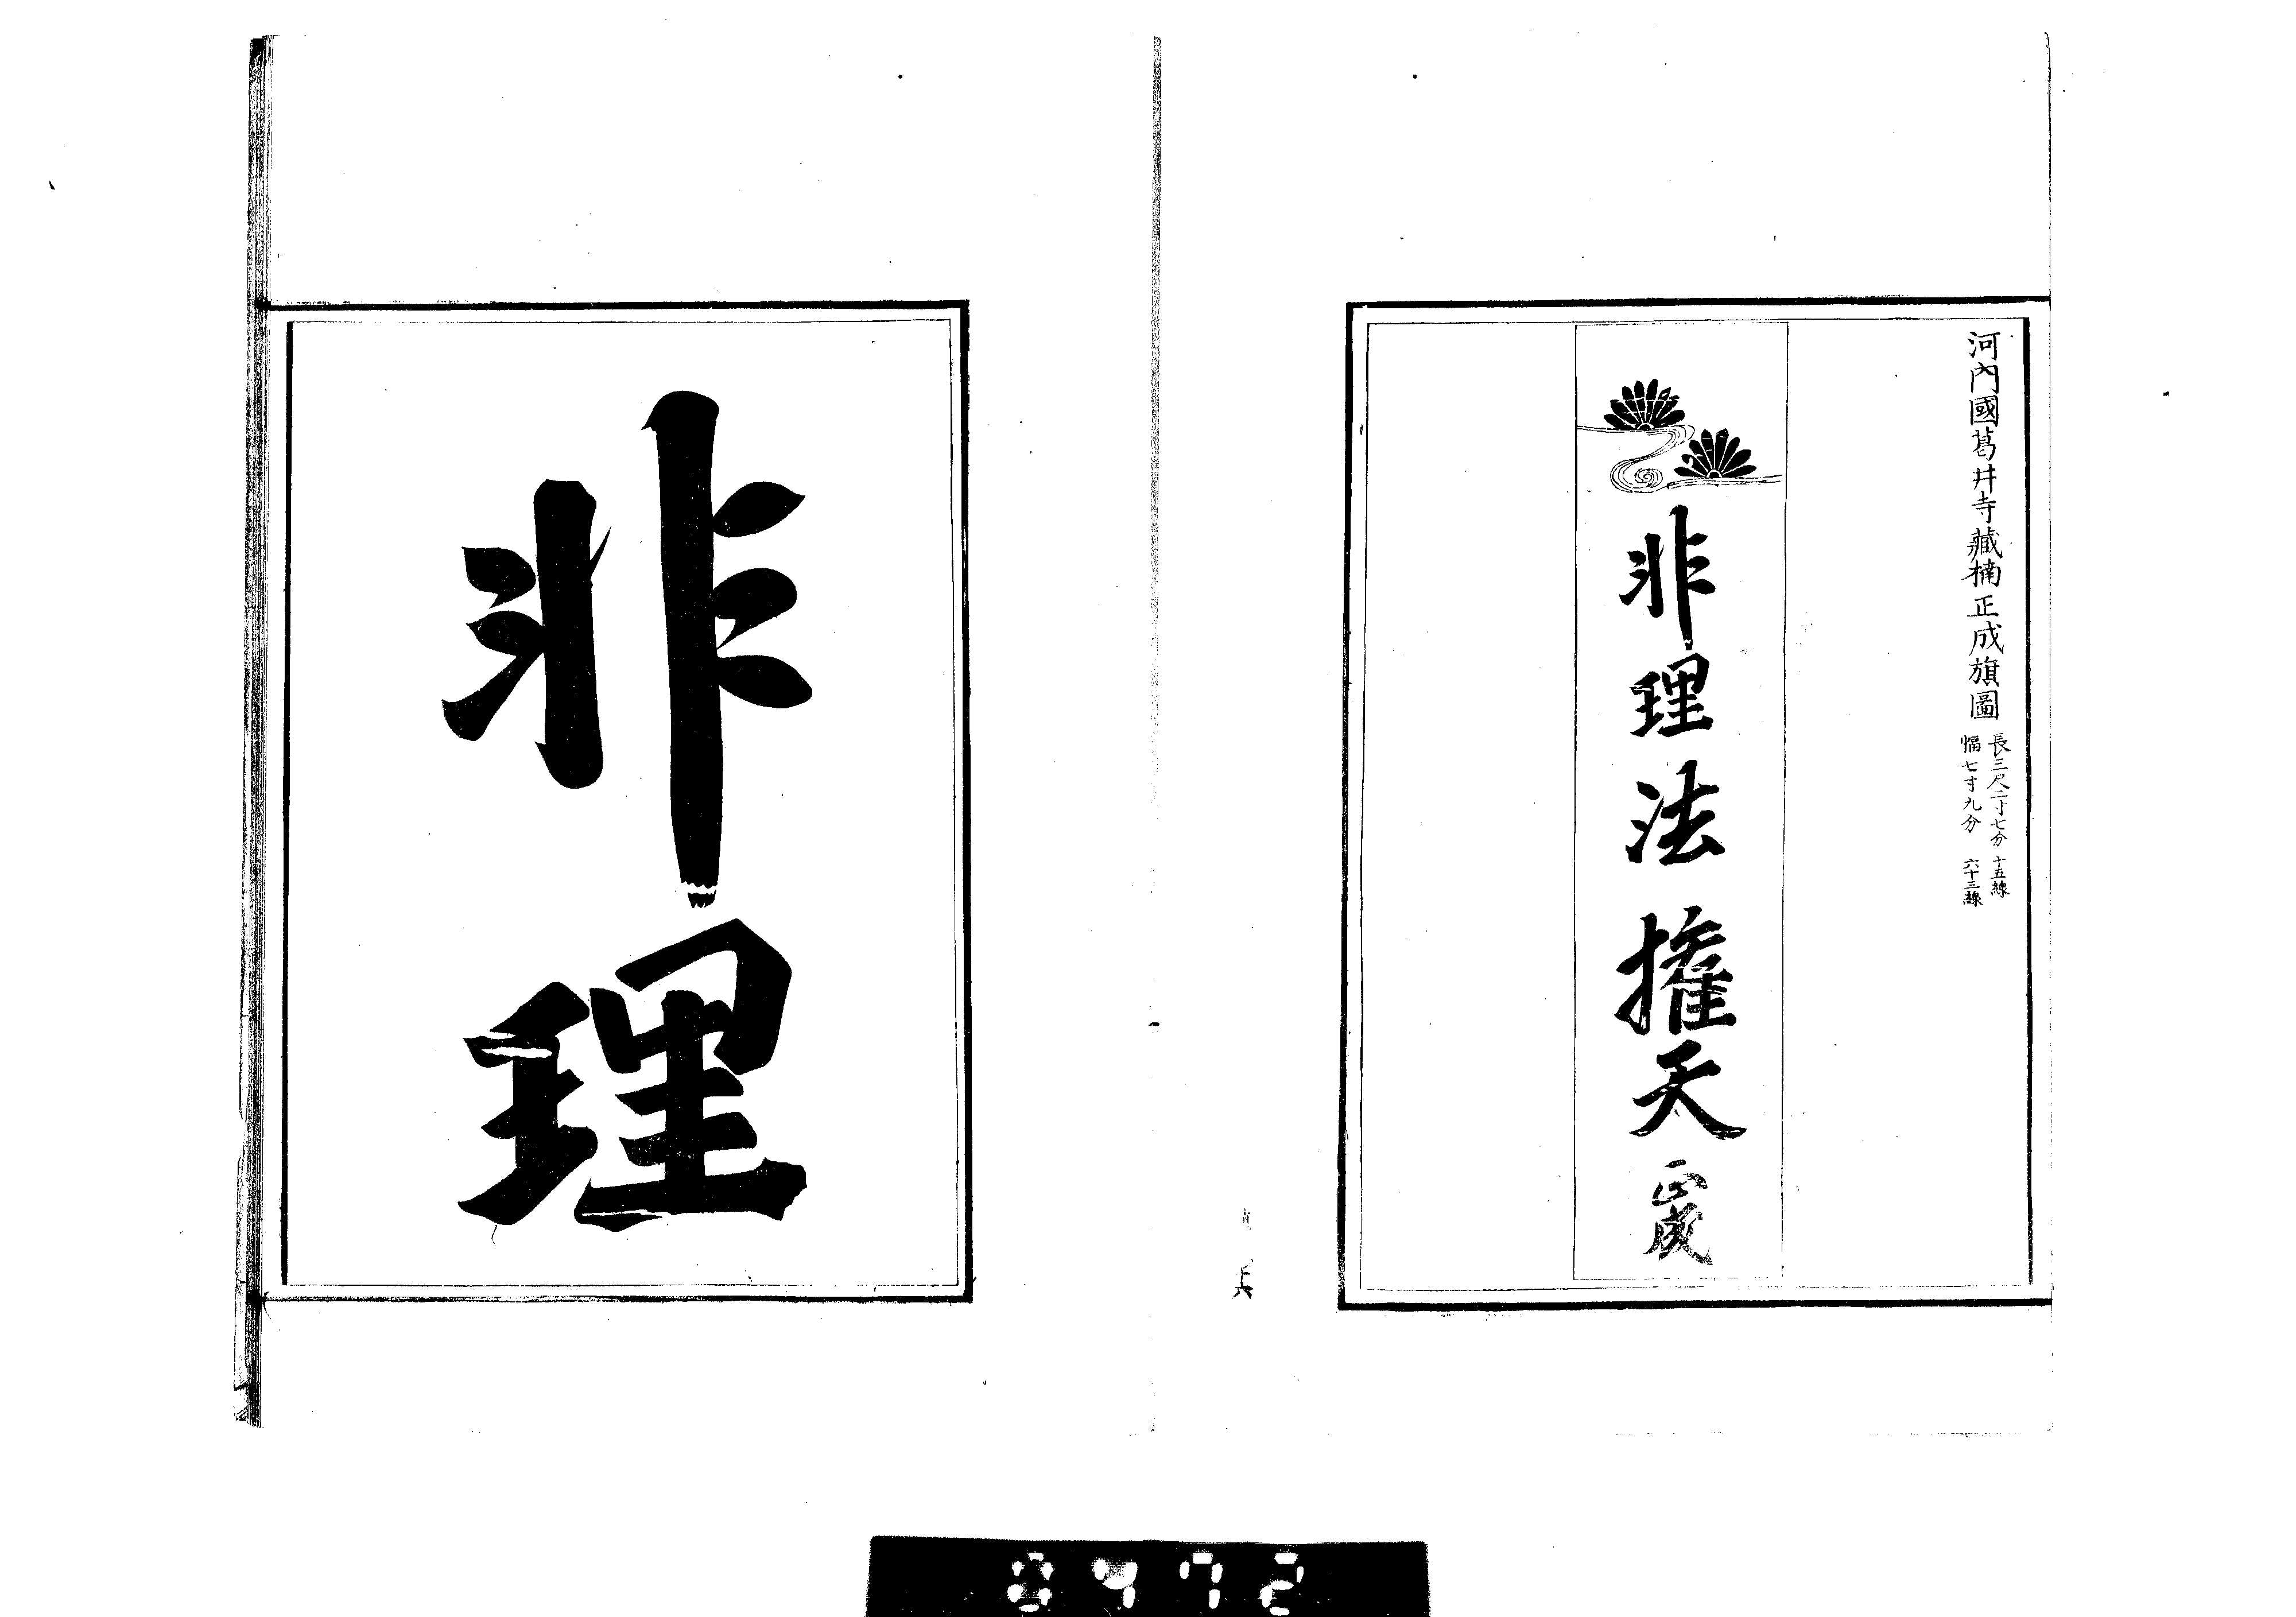 河內國葛井寺藏楠正成旗圖
長三尺二寸七分 十五線
幅七寸九分 六十三線
非理法權天
正成
六
非理
0472